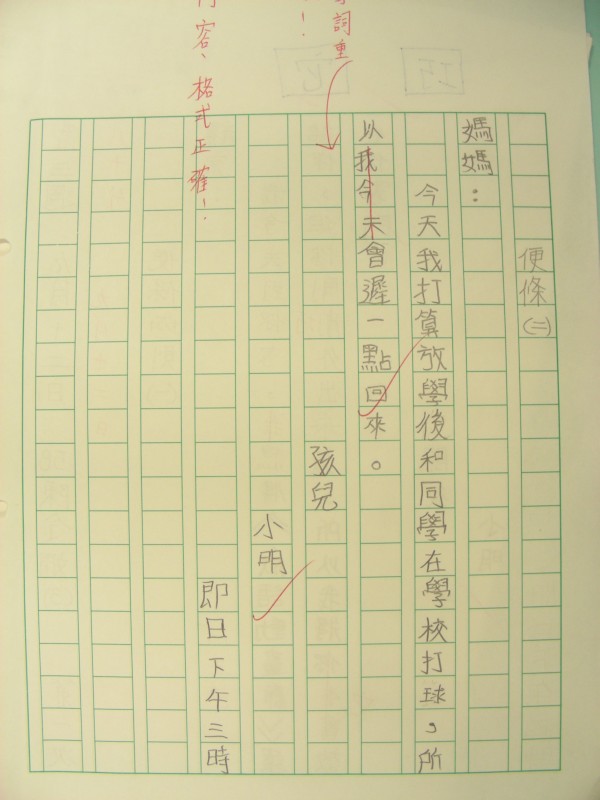 便條(二)
媽媽：
今天我打算放學後和同學在學校打球，所
以我今天會遲一點回來。
孩兒
小明
即日下午三時
詞重
！
容、格式正確！